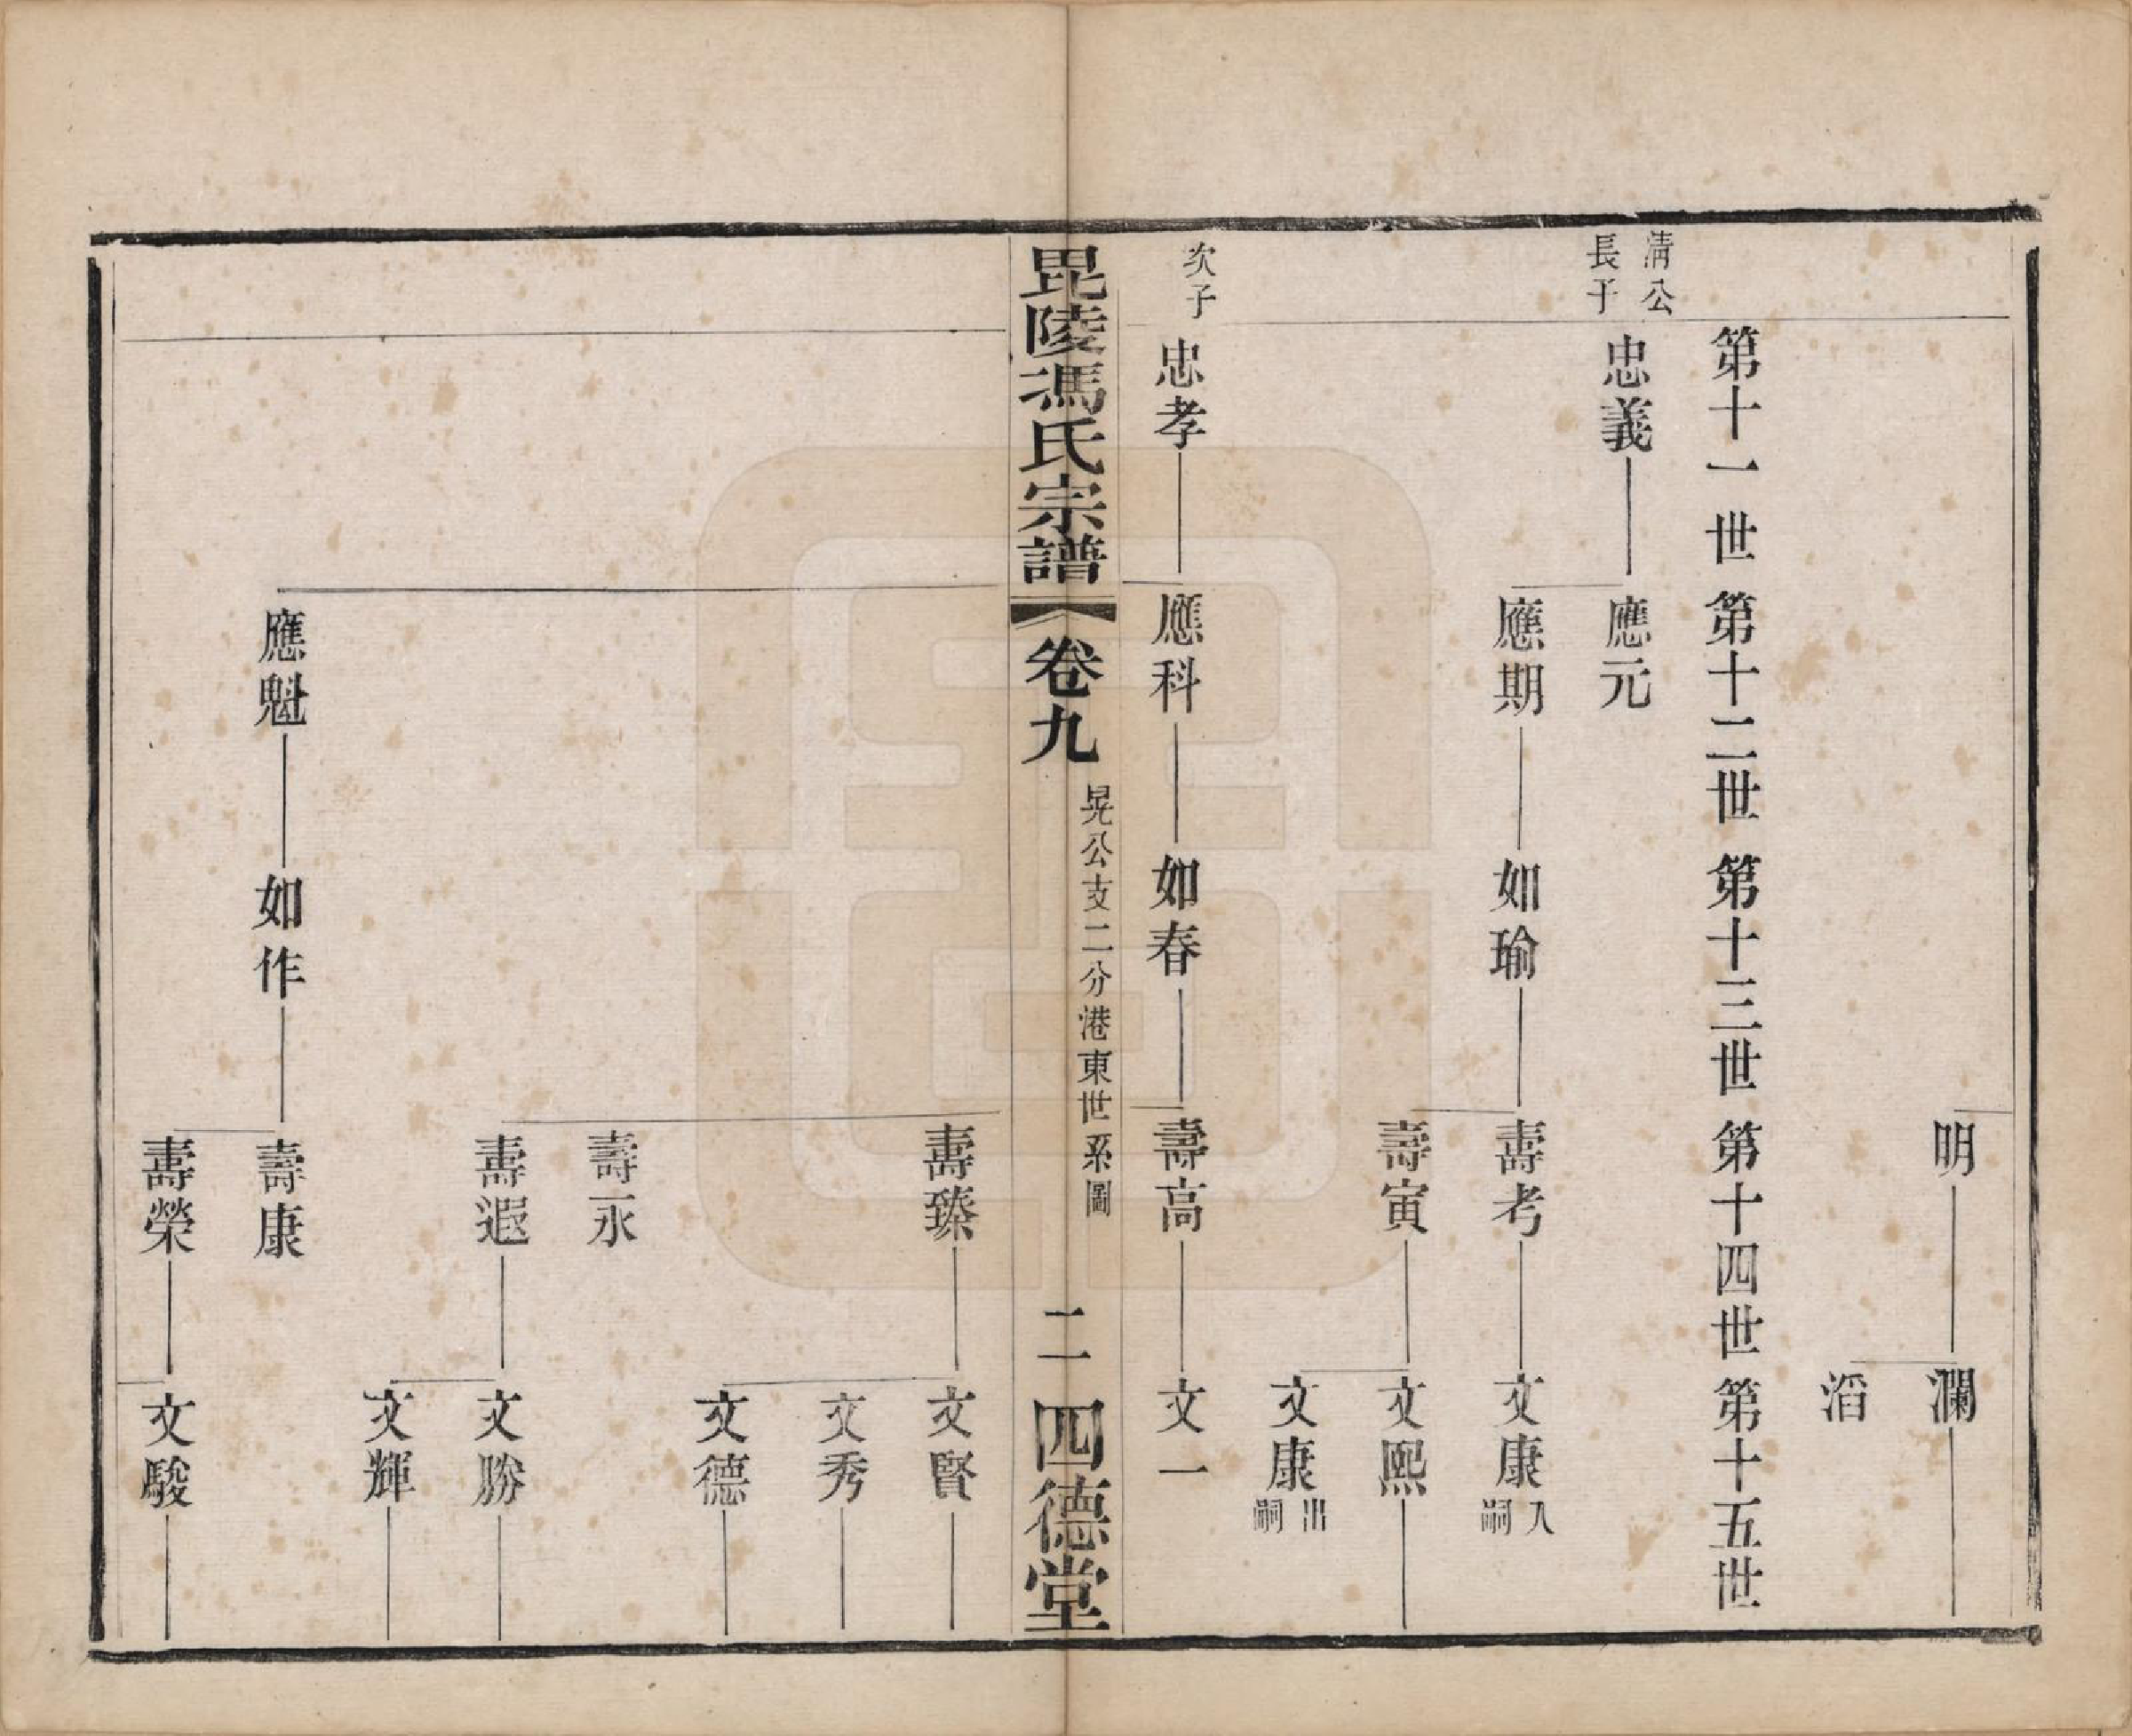 明
瀾
滔
第十一世 第十二世 第十三世 第十四世 第十五世
清公
長子
忠義
應元
應期
如瑜
壽考
文康
入
嗣
壽寅
文熙
文康
出
嗣
次子
忠孝
應科
如春
壽高
文一
毘陵馮氏宗譜 卷九
晃公支二分港東世系圖
二
四德堂
壽臻
文賢
文秀
文德
壽永
壽遐
文勝
文輝
應魁
如作
壽康
壽榮
文駿